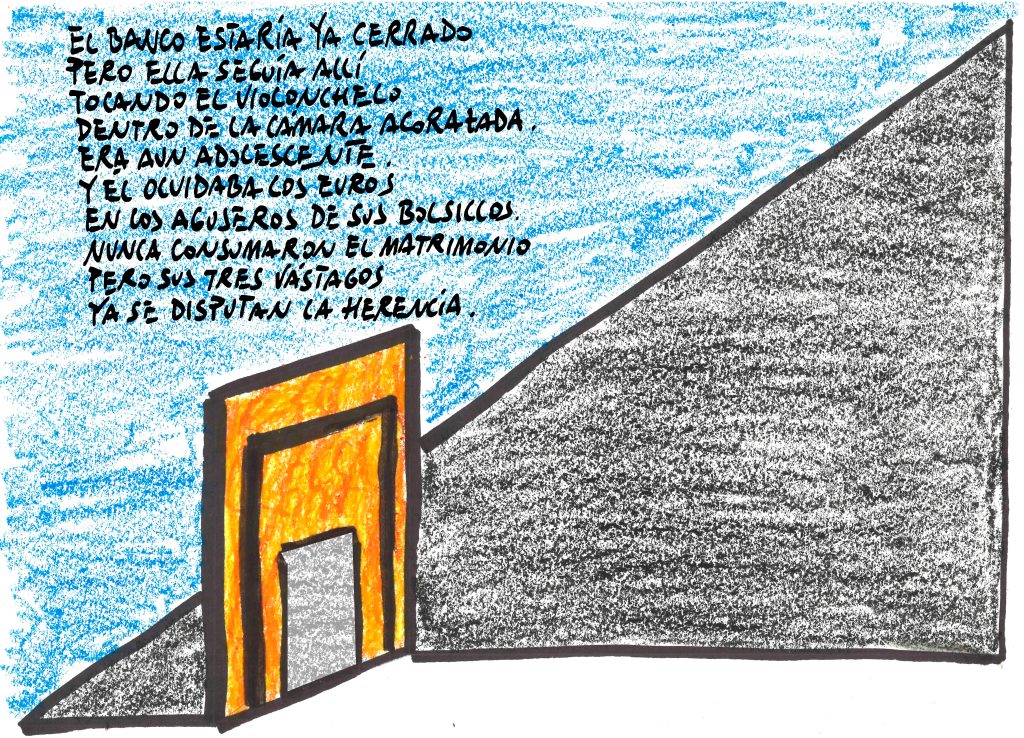 EL BANCO ESTARÍA YA CERRADO
PERO ELLA SEGUÍA ALLÍ
TOCANDO EL VIOLONCHELO
DENTRO DE LA CAMARA ACORAZADA.
ERA AUN ADOLESCENTE.
Y EL OLVIDABA LOS EUROS
EN LOS AGUSEROS DE SUS BOLSILLOS.
NUNCA CONSUMARON EL MATRIMONIO
PERO SUS TRES VÁSTAGOS
YA SE DISPUTAN LA HERENCÍA.